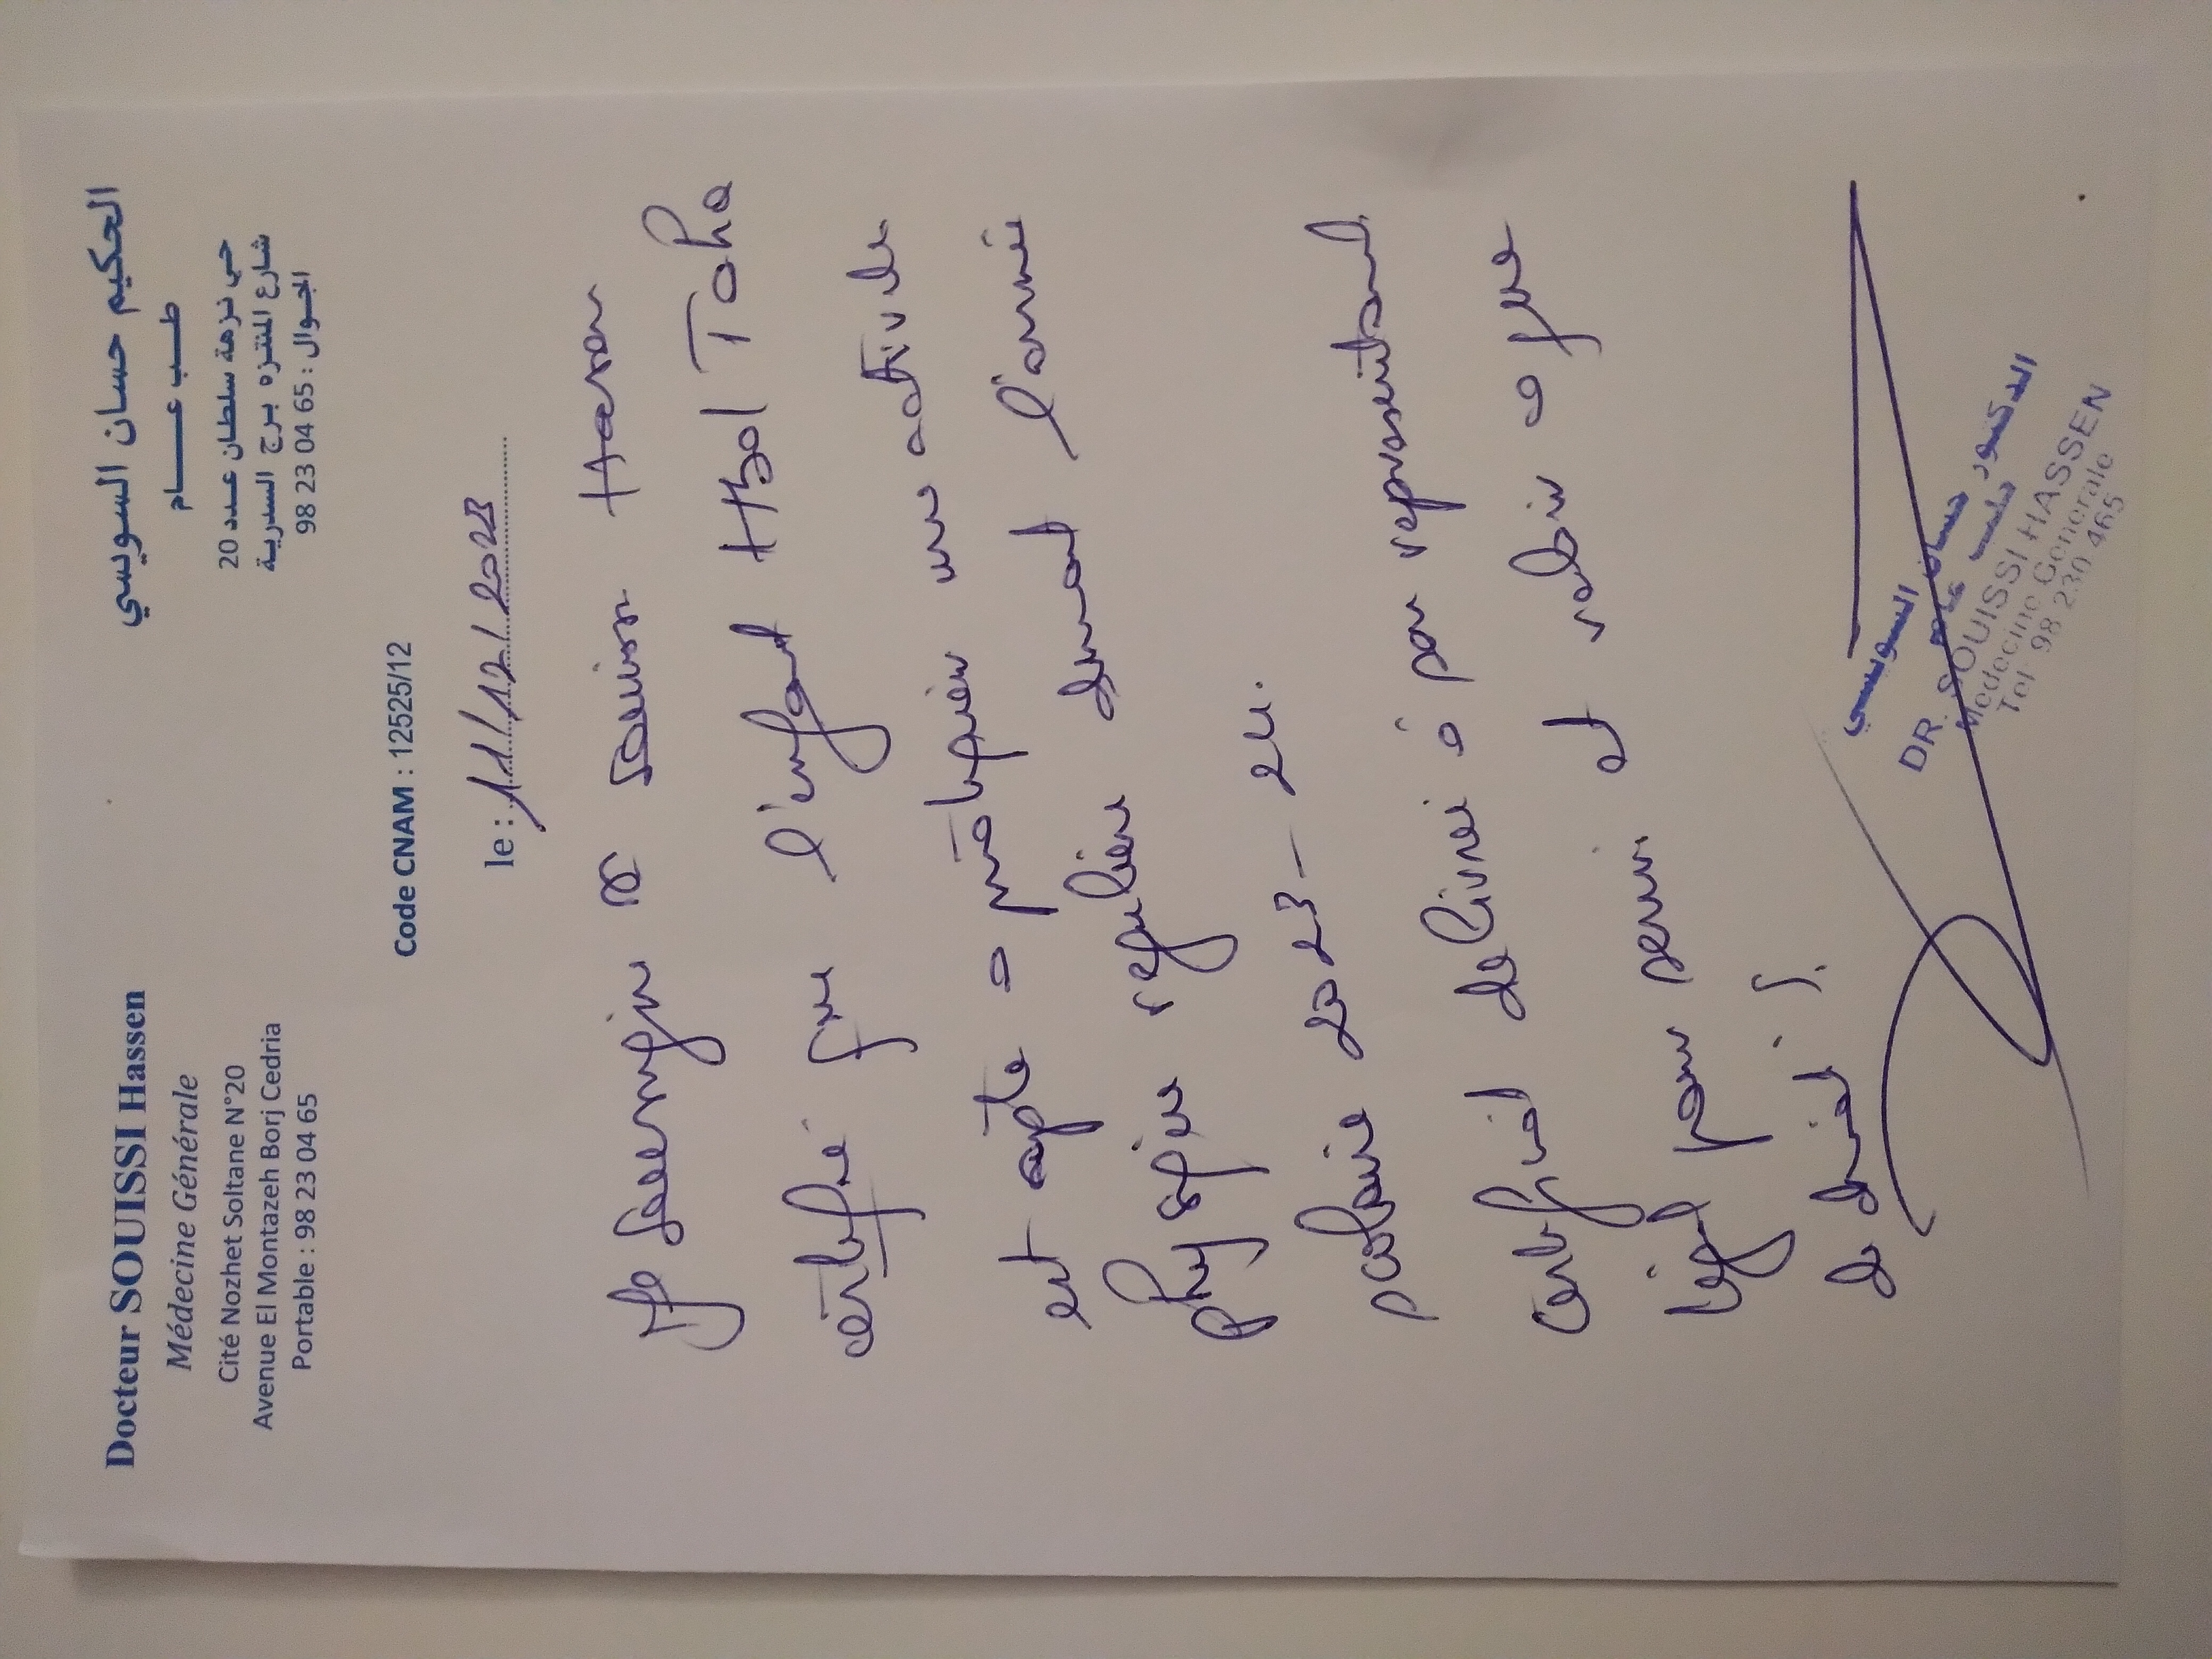 Docteur SOUISSI Hassen
Médecine Générale
Cité Nozhet Soltane N°20
Avenue El Montazeh Borj Cedria
Portable : 98 23 04 65
الحكيم حسان السويسي
طب عام
حي نزهة سلطان عدد 20
شارع المنتزه برج السدرية
الجوال : 98 23 04 65
Code CNAM : 12525/12
le : 11/12/2023
Je soussigné Dr Souissi Hassen
certifie que l'enfant Hbol Taha
est apte à pratiquer une activité
physique régulière durant l'année
scolaire 2023 -
Certificat délivré à son représentant
légal pour servir et valoir ce que
de droit.
الدكتور حسان السويسي
طب عام
DR. SOUISSI HASSEN
Médecine Génerale
Tel 98 230 465